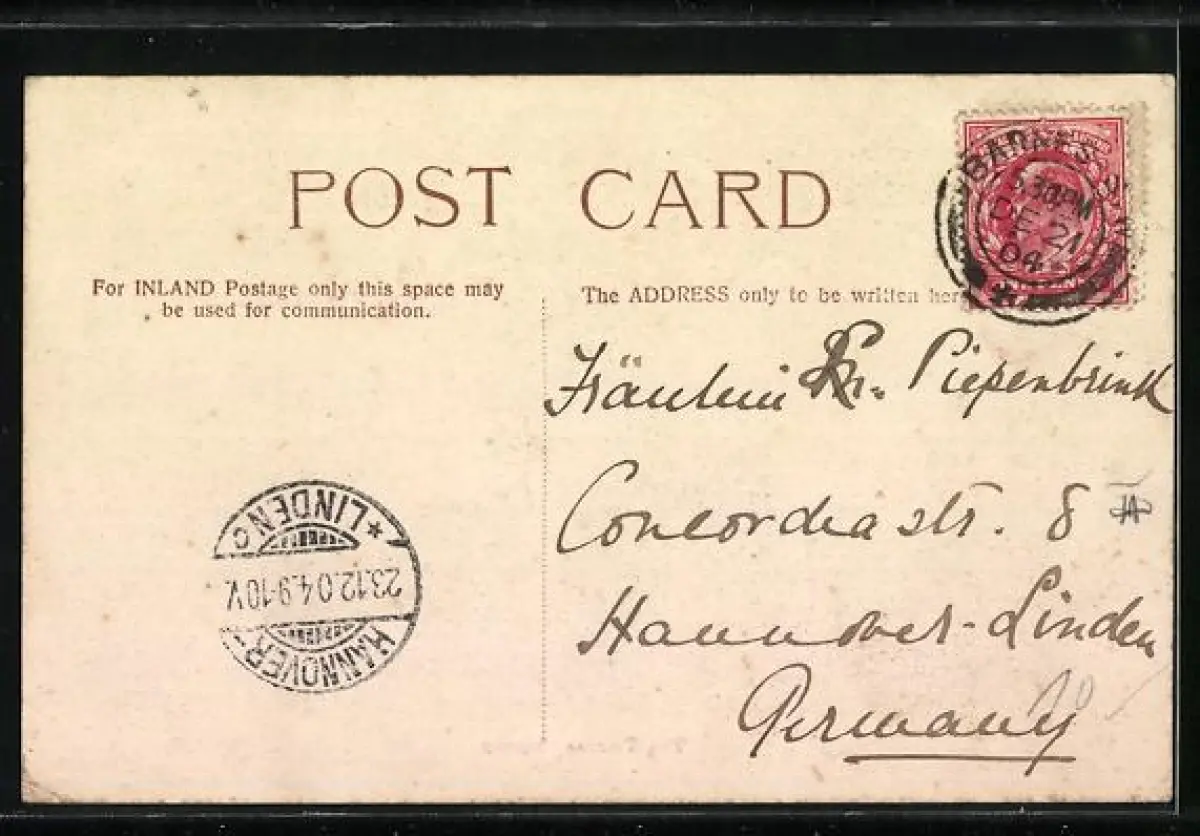 POST CARD
For INLAND Postage only this space may
be used for communication.
The ADDRESS only to be written her
BARNES
5.30PM
DE 21
04
Fräulein Piepenbrink
Concordiastr. 8
Hannover-Linden
Germany
HANNOVER-
23.12.04.9-10V.
* LINDEN